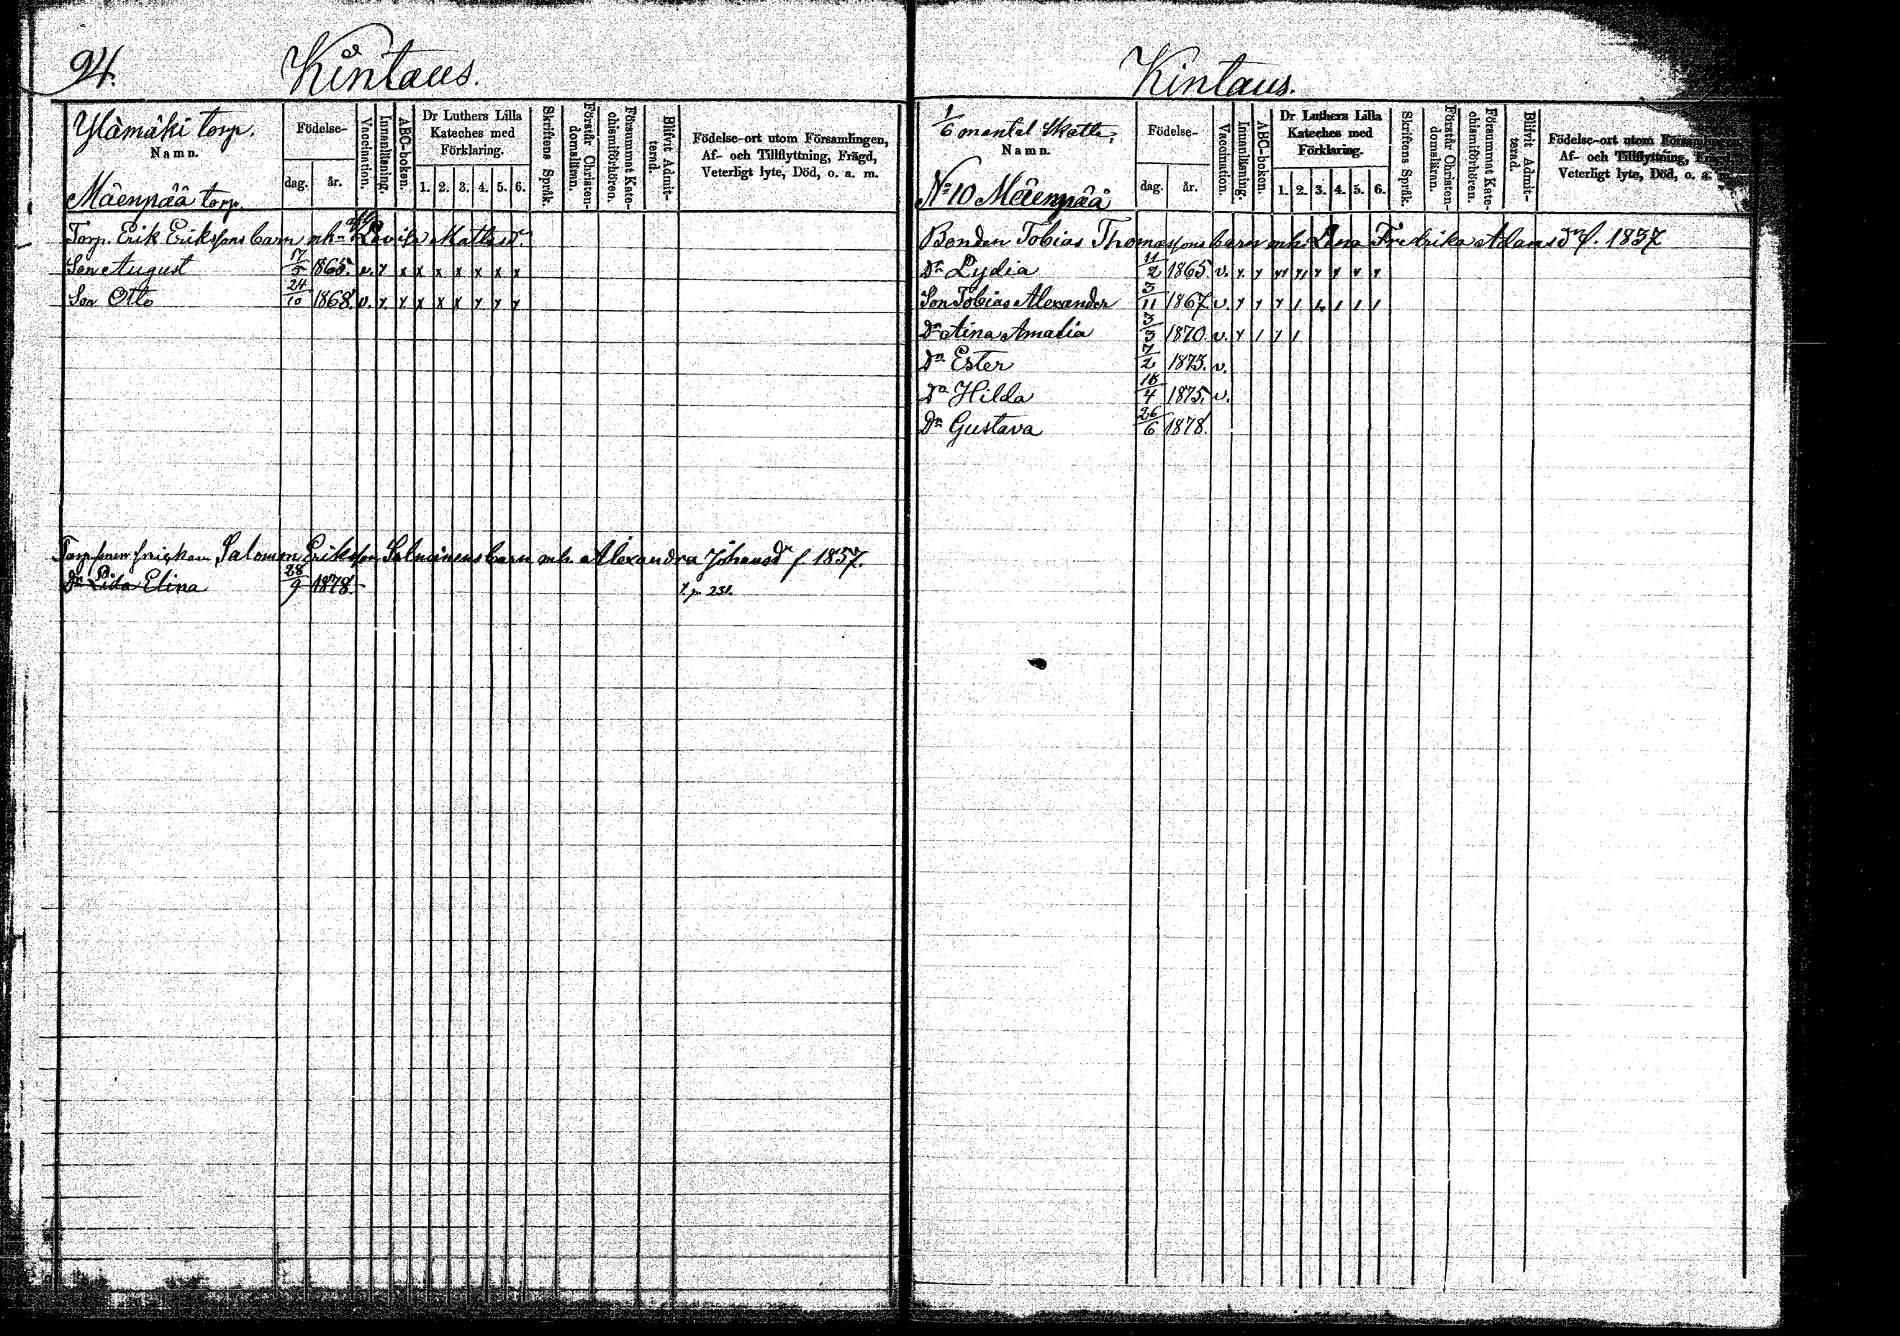 94.
Kintaus.
Ylämäki torp.
Namn.
Mäenpää torp.
Födelse-
dag. år.
Vaccination.
Innanläsning.
ABC-boken.
Dr Luthers Lilla
Kateches med
Förklaring.
1. 2. 3. 4. 5. 6.
Skriftens Språk.
Förstår Christen-
domsläran.
Försummat Kate-
chismiförhören.
Blifvit Admit-
terad.
Födelse-ort utom Församlingen,
Af- och Tillflyttning, Frägd,
Veterligt lyte, Död, o. a. m.
Torp. Erik Erikssons barn mh. Lovisa Mattsdr
Son August 17/5 1865. v. x x x x x x x x
Son Otto 24/10 1868. v. x x x x x x x x
Salomon Eriksson Salminens barn mh. Alexandra Johansdr f. 1857.
Dr Lida Elina 28/9 1878. t. p. 251.
Kintaus.
1/6 mantal Skatte,
Namn.
No 10 Mäenpää
Födelse-
dag. år.
Vaccination.
Innanläsning.
ABC-boken.
Dr Luthers Lilla
Kateches med
Förklaring.
1. 2. 3. 4. 5. 6.
Skriftens Språk.
Förstår Christen-
domsläran.
Försummat Kate-
chismiförhören.
Blifvit Admit-
terad.
Födelse-ort utom Församlingen,
Af- och Tillflyttning, Frägd,
Veterligt lyte, Död, o. a. m.
Bonden Tobias Thomassons barn mh. Lina Fredrika Adamsdr f. 1837
Dr Lydia 11/2 1865 v. x x x x x x x x
Son Tobias Alexander 3/11 1867. v. x x x / x / / /
Dr Aina Amalia 3/3 1870. v. x / x /
Dr Ester 7/2 1873. v.
Dr Hilda 18/4 1875. v.
Dr Gustava 26/6 1878.